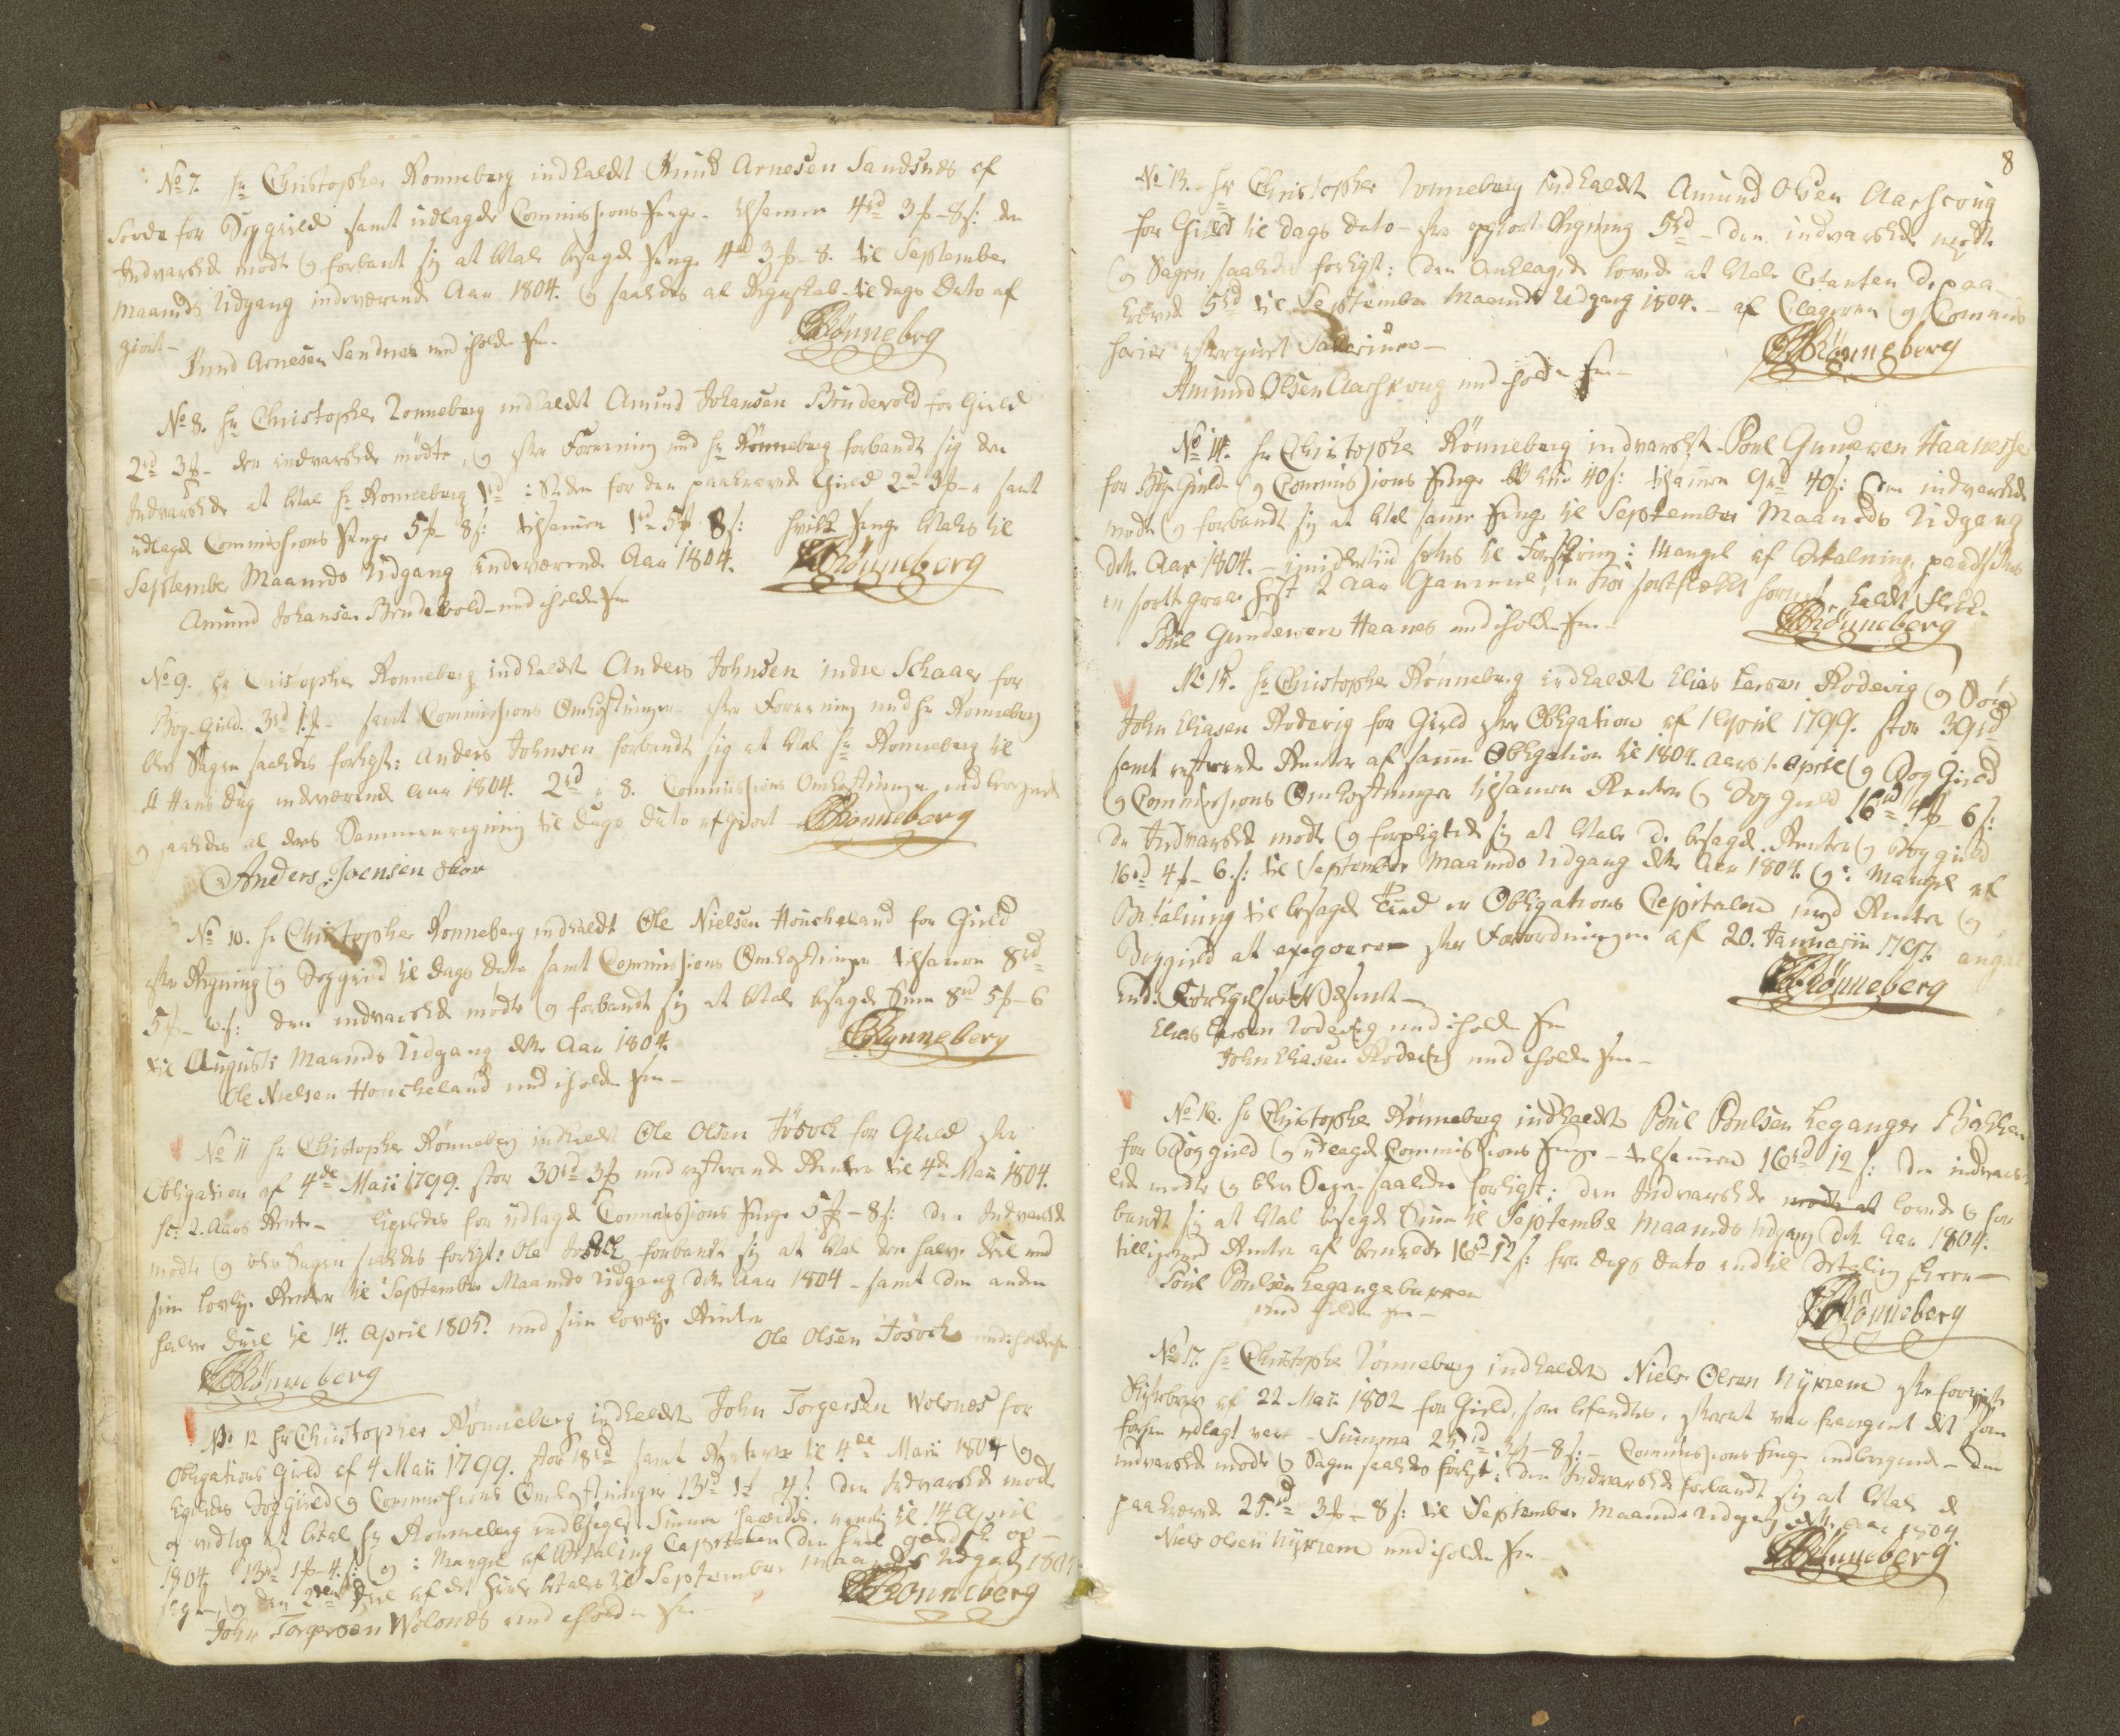 No 7. Hr Christopher Ronneberg indkaldt Knud Arnesen Sandsnes af
for Boggield samt udlagde Commissions Penge tilsammen 4rd 3 - 8s: den
Indvarslede mödte og forbant sig at betale besagde Penge 4rd 3 - 8. til September
Maaneds Udgang indeværende Aar 1804. og saaledes al Regnskab til dags Dato af
giort -
Knud Arnesen Sandnes med iholden Pen. CRönneberg
No 8. Hr Christopher Ronneberg indkaldt Amund Johansen Brudevold for Gield
2rd 3 - den indvarslede mödte, og efter Forening med Hr Rönneberg forbandt sig den
Indvarslede at betale Hr Ronneberg 1rd i Steden for den paakrævede Gield 2rd 3 - samt
udlagde Commissions Penge 5 - 8s: tilsammen 1rd 5 8s: hvilke Penge betales til
September Maaneds Udgang indeværende Aar 1804. CRönneberg
Amund Johansen Brudevold med iholden Pen
No 9. Hr Cristopher Ronneberg indkaldt Anders Johnsen indre Schaar for
Bog-Gield. 3rd 1 - samt Commissions Omkostninger efter Forening med Hr Ronneberg
blev Sagen saaledes forligt: Anders Johnsen forbandt sig at betale Hr Ronneberg til
St Hans dag indeværende Aar 1804. 2rd 8. Commissions Omkostninger indberegnede
og saaledes al deres Sammenregning til dags dato afgiort CRönneberg
Anders Joensen skor
No 10. Hr Christopher Ronneberg indkaldt Ole Nielsen Houcheland for Gield
efter Regning og Boggield til dags dato samt Commissions Omkostninger tilsammen 8rd
5 - 6s: den indvarslede mödte og forbandt sig at betale besagde Sum 8rd 5 - 6
til Augusti Maaneds Udgang dette Aar 1804. CRönneberg
Ole Nielsen Houcheland med iholden Pen -
No 11 Hr Christopher Rönneberg indkaldt Ole Olsen Jösock for Gield efter
Obligation af 4de Maii 1799. stor 30rd 3 med resterende Renter til 4de Maii 1804.
2. Aars Rente - ligeledes for udlagde Commissions Penge 5 - 8s: den Indvarslede
mödte og blev Sagen saaledes forligt: Ole Jösock forbandt sig at betale den halve Deel med
sine lovlige Renter til September Maaneds Udgang dette Aar 1804 - samt den anden
halve Deel til 14. April 1805. med sine lovlige Renter
Ole Olsen Jösock med iholden Pen
CRönneberg
No 12 Hr Christopher Rönneberg indkaldt John Torgersen Wolsnes for
Obligations Gield af 4 Maii 1799. stor 18rd samt Renterne til 4de Maii 1804 og
ligeledes Boggield og Commissions Omkostninger 13rd 1 4s: den Indvarslede mödte
og vedtog at betale Hr Ronneberg Summa til 14 April
1804 13rd 1 - 4s: og i Mangel af Betaling Capitalen den heele Gield op-
sagt, og den 2den Deel af det heele betales til September Maaneds Udgang 1804
John Torgersen Wolsnes med iholden Pen CRönneberg
8
No 13. Hr Christopher Ronneberg indkaldt Amund Olsen Aarscoug
for Gield til dags dato - efter opgiort Regning 5rd - den indvarslede mödte
og Sagen saaledes forligt: den Anklagede lovede at betale Citanten de paa-
krævede 5rd til September Maaneds Udgang 1804. - af Clageren og Commis
sarier eftergivet Salarium -
Amund Olsen Aarskoug med iholden Pen - CRönneberg
No 14. Hr Christopher Rönneberg indvarslet Poul Gundersen Haanes
for Bog-Gield og Commissions Penge 40s: tilsammen 9rd 40s: den indvarslede
mödte og forbandt sig at betale samme Penge til September Maaneds Udgang
dette Aar 1804. - imidlertiid sættes til Forsikring i Mangel af Betaling, pandsettes
en sort graa Hest 2 Aar Gammel, en Koe sortflekket kaldet
Poul Gundersen Haanes med iholden Pen - CRönneberg
No 15. Hr Christopher Rönneberg indkaldt Elias Larsen Rodevig og Sön
John Eliasen Rodevig for Gield efter Obligation af 1 April 1799. stor 39rd
samt resterende Renter af samme Obligation til 1804. Aars 1. April og Bog Gield
og Commissions Omkostninger tilsammen Renter og Boggield 16rd 4 6s:
de Indvarslede mödte og forpligted sig at betale de besagde Renter og Boggield
16rd 4 - 6s: til September Maaneds Udgang dette Aar 1804. og i Mangel af
Betalning til besagde Tiid er Obligations Capitalen med Renter og
Boggield at exeqveres efter Forordningen af 20. Januarii 1797. angaa
ende Forligelses Væsenet -
Elias Larsen Rodevig med iholden Pen CRönneberg
John Eliasen Rodevig med iholden Pen -
No 16. Hr Christopher Rönneberg indkaldt Poul Poulsen Leganger Bakken
for Boggield og udlagde Commissions Penge - tilsammen 16rd 12s: den indvars-
lede mödte og blev Sagen saaledes forligt: den Indvarslede mödte at lovede og for
bandt sig at betale besagde Sum til September Maaneds Udgang dette Aar 1804.
tilligemed Renter af bemeldte 16rd 12s: fra dags dato indtil Betaling skeer -
Poul Poulsen Legangebakken
med iholden Pen - CRönneberg
No 17. Hr Christopher Rönneberg indkaldt Niels Olsen Myklem efter forrige
Skiftebrev af 22 Maii 1802 for Gield, som befandtes, efterat var fragaaet det som
forhen erlagt var - Summa 25rd 3 - 8s: - Commissions Penge indberegnede - den
indvarslede mödte og Sagen saaledes forligt: den Indvarslede forbandt sig at betale de
paakrævede 25rd 3 - 8s: til September Maaneds Udgang dette Aar 1804
Niels Olsen Myklem med iholden Pen CRönneberg